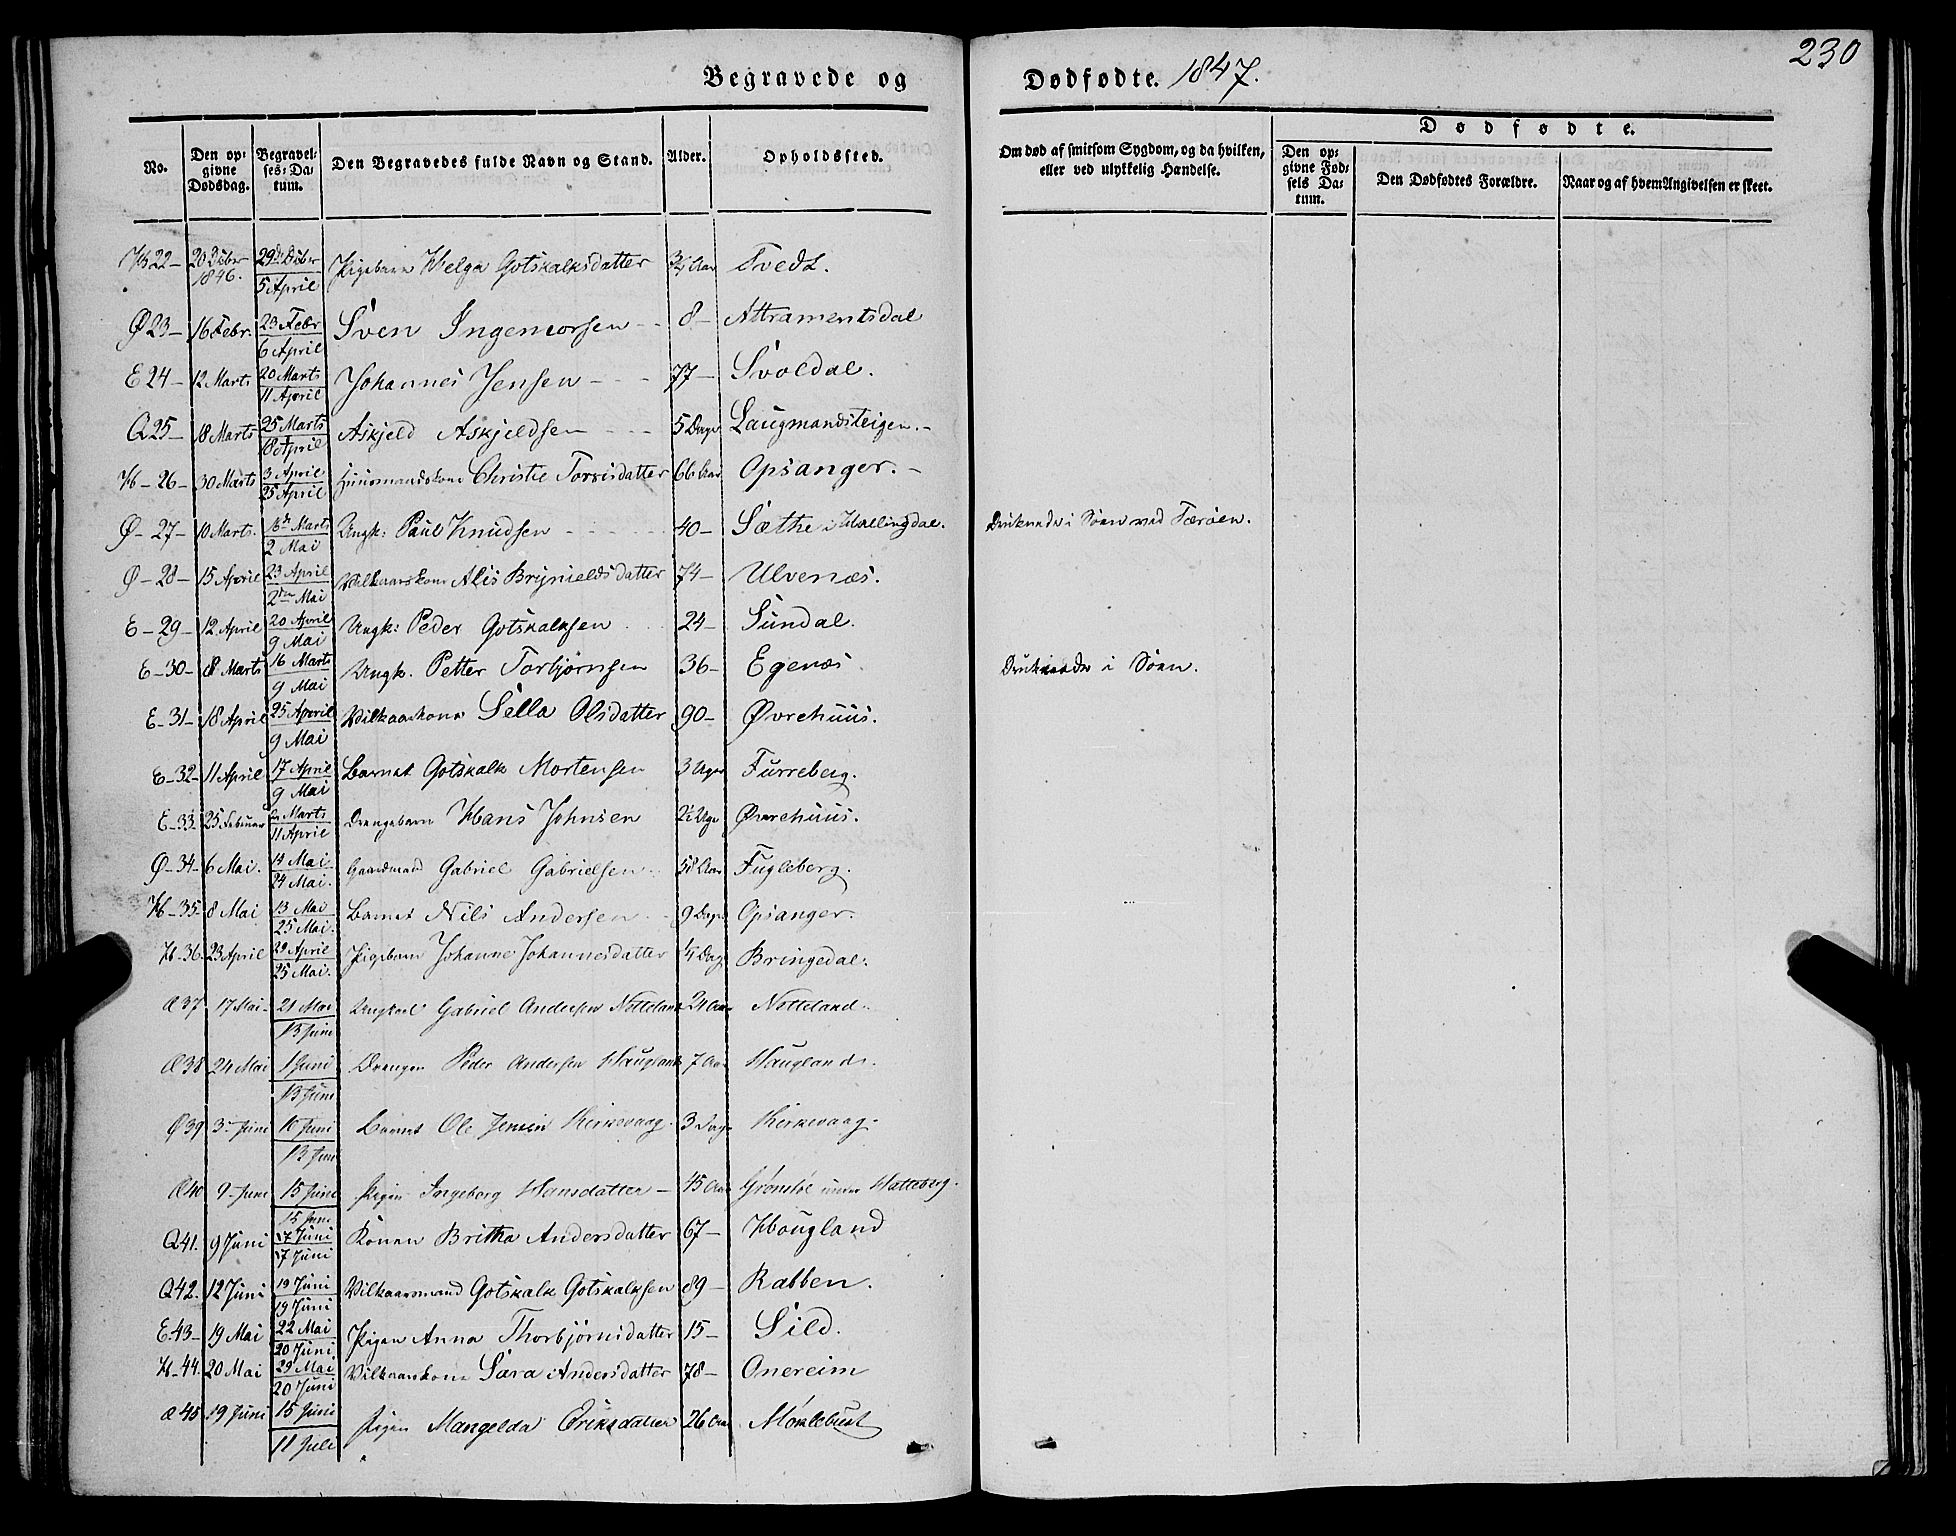 230
Begravede og Dødfødte. 1847.
No. Den opgivne Dødsdag. Begravelses-Datum. Den Begravedes fulde Navn og Stand. Alder. Opholdssted. Om død af smitsom Sygdom, og da hvilken, eller ved ulykkelig Hændelse. Dødfødte. Den opgivne Fødsels Datum. Den Dødfødtes Forældre. Naar og af hvem Angivelsen er skeet.
H 22 – 20 Dcbr 1846. 29 Dcbr 5 April Pigebarn Helga Gotskalksdatter 3/4 Aar Tvedt.
Ø 23 – 16 Febr. 23 Febr 6 April Sven Ingemorsen – 8 – Attramentsdal
E 24 – 12 Marts 20 Marts 11 April Johannes Jensen – 77 – Svoldal.
Q 25 – 18 Marts 25 Marts 18 April Askjeld Askjeldsen 5 Dage Laugmandsteigen. –
H – 26 – 30 Marts 3 April 25 April Huusmandskone Christie Torrisdatter 66 Aar Opsanger. –
Ø – 27 – 10 Marts. 16de Marts 2 Mai Ungk: Paul Knudsen 40 – Sæthe i Hallingdal. Druknede i Søen ved Færøen.
Ø – 28 – 15 April 23 April 2den Mai Vilkaarskone Alis Brynieldsdatter 74 – Ulvenæs.
E – 29 – 12 April 20 April 9 Mai Ungk: Peder Gotskalksen 24 – Sundal.
E – 30 – 8 Marts 16 Marts 9 Mai Ungk. Petter Torbjørnsen 36 – Egenæs. Druknede i Søen.
E – 31 – 18 April 25 April 9 Mai Vilkaarskone Sella Olsdatter 90 – Øvrehuus.
E – 32 – 11 April 17 April 9 Mai Barnet Gotskalk Mortensen 3 Uger Furreberg.
E – 33. 25 Februar Marts 11 April Drengebarn Hans Johnsen 2½ Uge Øvrehuus.
Ø – 34 – 6 Mai. 14 Mai 24 Mai. Gaardmand Gabriel Gabrielsen 58 Aar Fugleberg.
H – 35. 8 Mai 13 Mai 25 Mai. Barnet Nils Andersen 9 Dage Opsanger.
H – 36. 23 April 29 April 25 Mai. Pigebarn Johanne Johannesdatter Dag Bringedal.
Æ 37. 17 Mai – 21 Mai 13 Juni Ungkarl Gabriel Andersen Notteland 24 Aar Notteland.
Æ 38 24 Mai 1 Juni 13 Juni Drengen Peder Andersen Haugland 7 Aar Hauglands.
Ø 39 3 Juni 10 Juni 13 Juni Barnet Ole Jensen Kirkevaag 3 Dage Kirkevaag.
Æ 40 9 Juni 15 Juni 15 Juni Pigen Ingeborg Hansdatter – 45 Aar under Hatteberg.
Q 41. 9 Juni 17 Juni 17 Juni Konen Britha Andersdatter 67 – Hougland
Q 42. 12 Juni 19 Juni 19 Juni Vilkaarsmand Gotskalk Gotskalksen 89 – Rabben.
E. 43 – 19 Mai 22 Mai 20 Juni Pigen Anna Thorbjørnsdatter 15 – Sild.
H – 44. 20 Mai 29 Mai 20 Juni Vilkaarskone Sara Andersdatter 78 – Onereim
Æ 45 Juni 15 Juni 11 Juli Pigen Mangelda Eriksdatter 26 Aar Møklebust